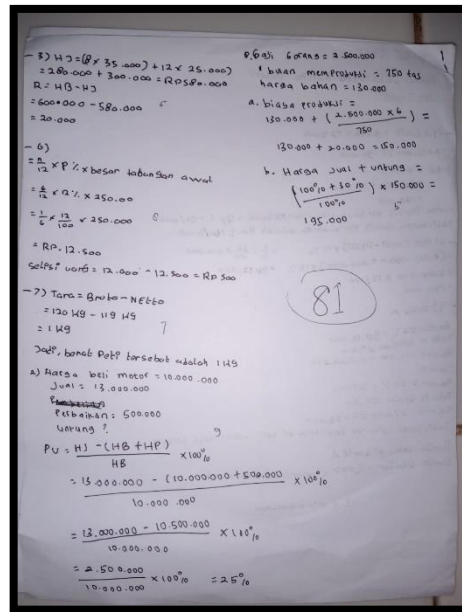 - 3) HJ = (8 x 35.000) + 12 x 25.000)
= 280.000 + 300.000 = RP 580.000
R = HB - HJ
= 600.000 - 580.000
= 20.000
- 6)
= n/12 x P % x besar tabungan awal
x 12 % x 250.00
= 1/6 x 12/100 x 250.000
= RP. 12.500
uang = 12.000 - 12.500 = RP 500
- 7) Tara = Bruto - NEtto
= 120 kg - 119 kg
= 1 kg
7
Jadi, berat Peti tersebut adalah 1 kg
2) Harga beli motor = 10.000.000
Jual = 13.000.000
Perbaikan = 500.000
Untung ?
9
PU = HJ - (HB + HP) / HB x 100%
= 13.000.000 - (10.000.000 + 500.000 / 10.000.000 x 100%
= 13.000.000 - 10.500.000 / 10.000.000 x 100%
= 2.500.000 / 10.000.000 x 100% = 25%
1
Gaji 6 orang = 2.500.000
1 bulan memproduksi = 750 tas
harga bahan = 130.000
a. biaya produksi =
130.000 + (2.500.000 x 6 / 750) =
130.000 + 20.000 = 150.000
b. Harga Jual + untung =
(100% + 30% / 100%) x 150.000 =
195.000
5
81